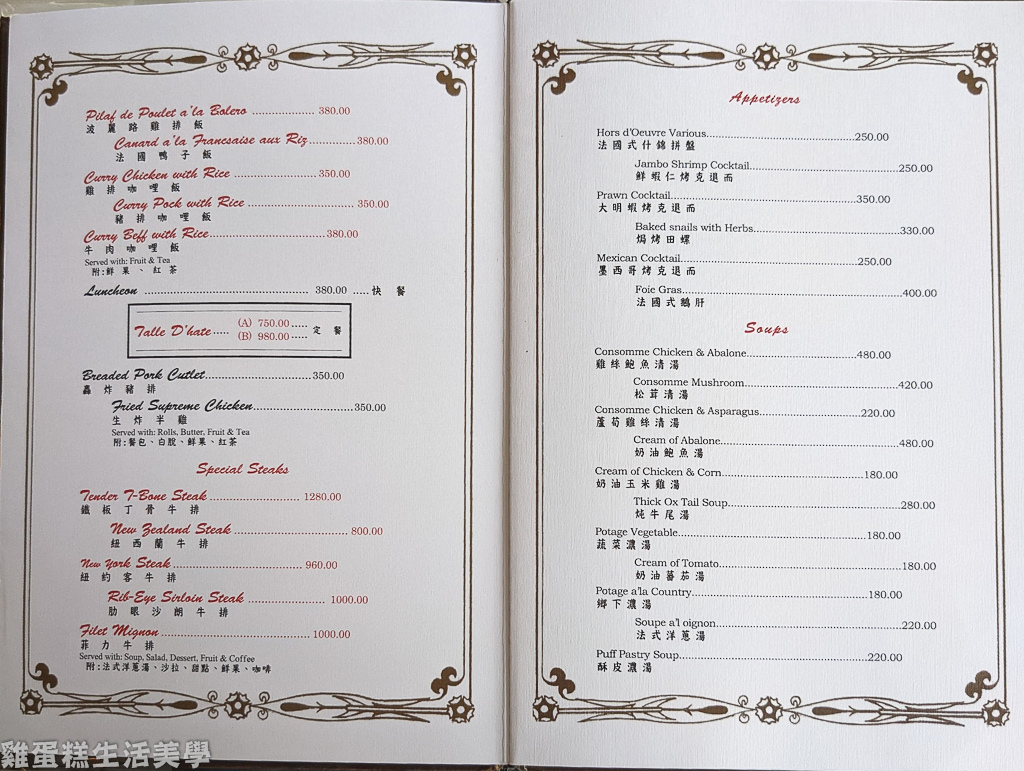 Pilaf de Poulet a'la Bolero .................. 380.00
波麗路雞排飯
Canard a'la Francsaise aux Riz............. 380.00
法國鴨子飯
Curry Chicken with Rice ........................ 350.00
雞排咖哩飯
Curry Pock with Rice .............................. 350.00
豬排咖哩飯
Curry Beff with Rice................................. 380.00
牛肉咖哩飯
Served with: Fruit & Tea
附:鮮果、紅茶
Luncheon ....................................................... 380.00 ..... 快餐
Talle D'hate..... (A) 750.00 ..... 定餐
(B) 980.00 .....
Breaded Pork Cutlet.............................. 350.00
轟炸豬排
Fried Supreme Chicken............................. 350.00
生炸半雞
Served with: Rolls, Butter, Fruit & Tea
附:餐包、白脫、鮮果、紅茶
Special Steaks
Tender T-Bone Steak .......................... 1280.00
鐵板丁骨牛排
New Zealand Steak .................................. 800.00
紐西蘭牛排
New York Steak ..................................... 960.00
紐約客牛排
Rib-Eye Sirloin Steak ...................... 1000.00
肋眼沙朗牛排
Filet Mignon ........................................... 1000.00
菲力牛排
Served with: Soup, Salad, Dessert, Fruit & Coffee
附:法式洋蔥湯、沙拉、甜點、鮮果、咖啡
Appetizers
Hors d'Oeuvre Various.......................................... 250.00
法國式什錦拼盤
Jambo Shrimp Cocktail........................................... 250.00
鮮蝦仁烤克退而
Prawn Cocktail..................................................... 350.00
大明蝦烤克退而
Baked snails with Herbs......................................... 330.00
焗烤田螺
Mexican Cocktail.................................................. 250.00
墨西哥烤克退而
Foie Gras............................................................... 400.00
法國式鵝肝
Soups
Consomme Chicken & Abalone............................... 480.00
雞絲鮑魚清湯
Consomme Mushroom........................................... 420.00
松茸清湯
Consomme Chicken & Asparagus............................ 220.00
蘆荀雞絲清湯
Cream of Abalone.................................................. 480.00
奶油鮑魚湯
Cream of Chicken & Corn........................................ 180.00
奶油玉米雞湯
Thick Ox Tail Soup................................................. 280.00
炖牛尾湯
Potage Vegetable..................................................... 180.00
蔬菜濃湯
Cream of Tomato..................................................... 180.00
奶油蕃茄湯
Potage a'la Country................................................. 180.00
鄉下濃湯
Soupe a'l oignon..................................................... 220.00
法式洋蔥湯
Puff Pastry Soup..................................................... 220.00
酥皮濃湯
雞蛋糕生活美學